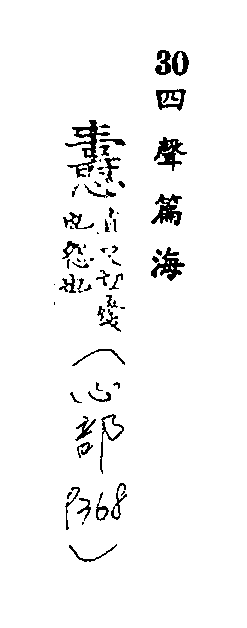 30四聲篇海
直切
也怨也
（心部P368）